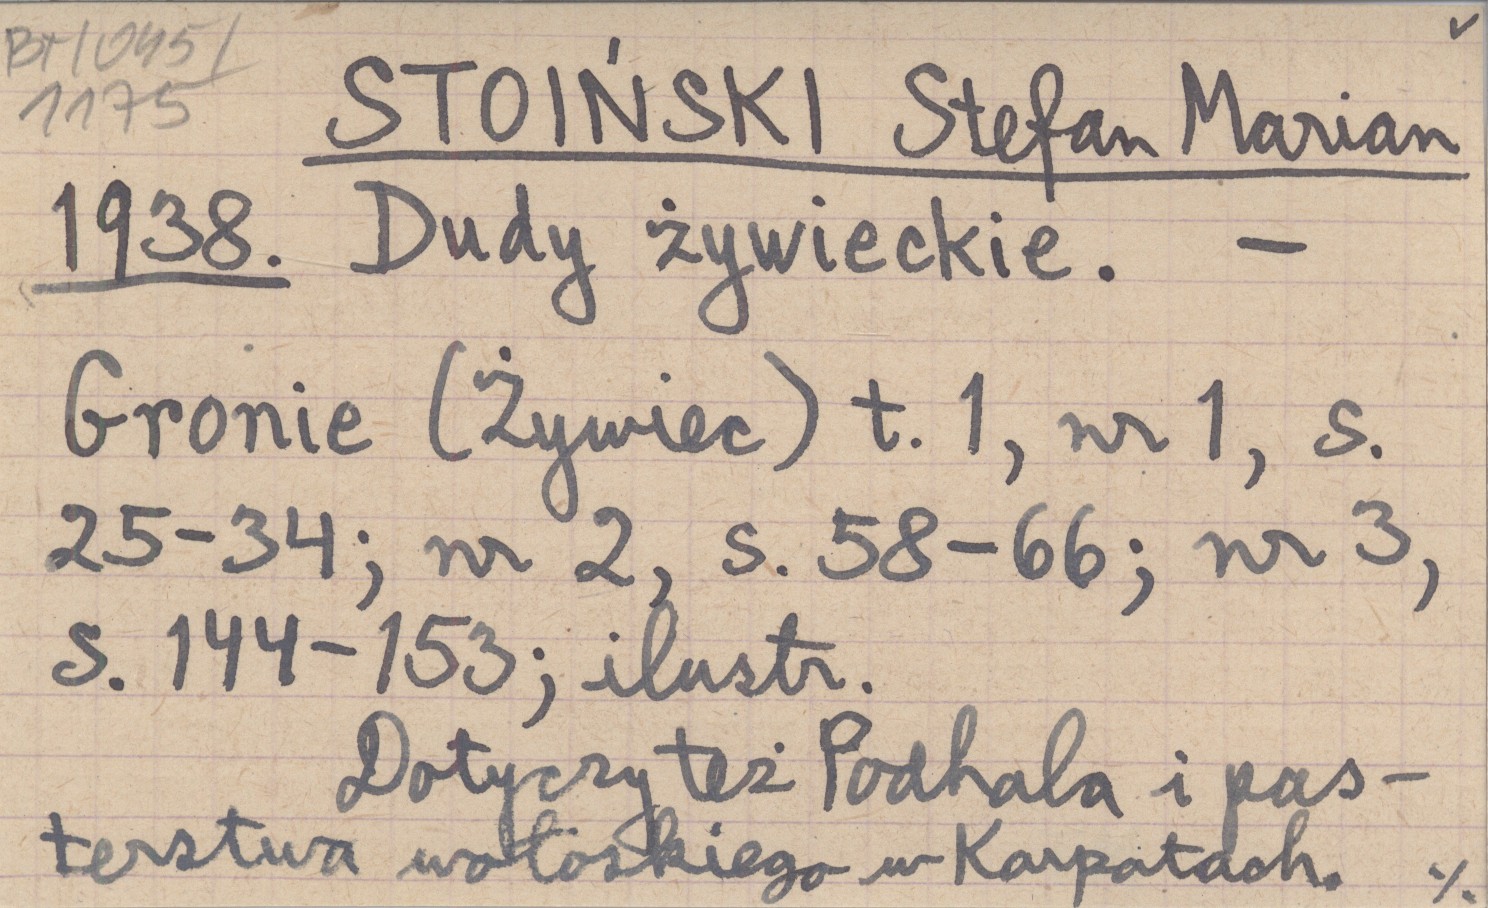 B+/045/
1175
STOIŃSKI Stefan Marian
1938. Dudy żywieckie. –
Gronie (Żywiec) t. 1, nr 1, s.
25-34; nr 2, s. 58-66; nr 3,
s. 144-153; ilustr.
Dotyczy też Podhala i pas-
terstwa wołoskiego w Karpatach. ٪.